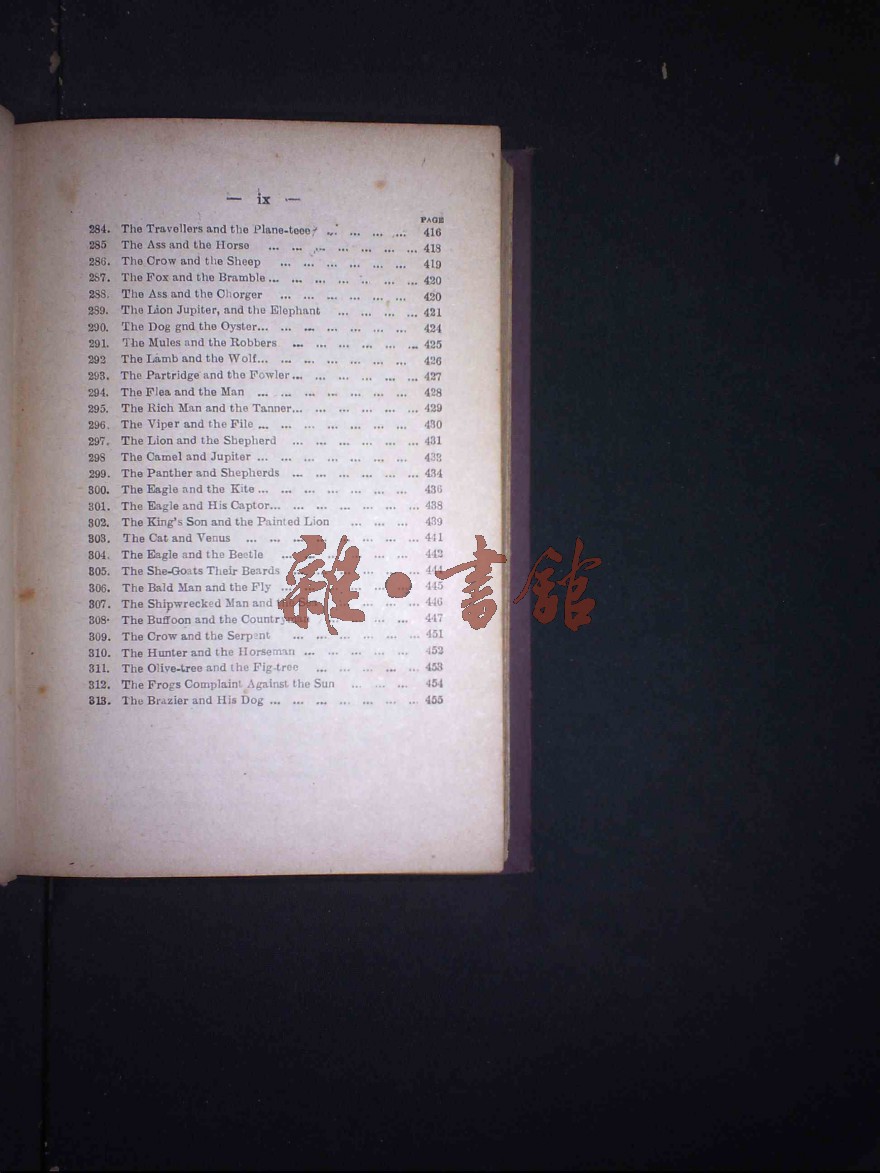 — ix —
PAGE
284. The Travellers and the Plane-teee ... ... ... ... 416
285 The Ass and the Horse ... ... ... ... ... ... ... 418
286. The Crow and the Sheep ... ... ... ... ... ... 419
287. The Fox and the Bramble ... ... ... ... ... ... ... 420
288. The Ass and the Chorger ... ... ... ... ... ... 420
289. The Lion Jupiter, and the Elephant ... ... ... ... 421
290. The Dog gnd the Oyster... ... ... ... ... ... ... 424
291. The Mules and the Robbers ... ... ... ... ... ... 425
292 The Lamb and the Wolf... ... ... ... ... ... ... 426
293. The Partridge and the Fowler ... ... ... ... ... ... 427
294. The Flea and the Man ... ... ... ... ... ... ... 428
295. The Rich Man and the Tanner... ... ... ... ... ... 429
296. The Viper and the File ... ... ... ... ... ... ... 430
297. The Lion and the Shepherd ... ... ... ... ... ... 431
298 The Camel and Jupiter ... ... ... ... ... ... ...
299. The Panther and Shepherds ... ... ... ... ... ... 434
300. The Eagle and the Kite ... ... ... ... ... ... ... 436
301. The Eagle and His Captor... ... ... ... ... ... ... 438
302. The King's Son and the Painted Lion ... ... ... 439
303. The Cat and Venus ... ... ... ... ... ... ... ... 441
304. The Eagle and the Beetle ... ... ... ... ... ... 442
305. The She-Goats Their Beards ... ... ... ... ... ... 444
306. The Bald Man and the Fly ... ... ... ... ... ... 445
307. The Shipwrecked Man and the Sea ... ... ... ... 446
308. The Buffoon and the Countryman ... ... ... ... 447
309. The Crow and the Serpent ... ... ... ... ... ... 451
310. The Hunter and the Horseman ... ... ... ... ... 452
311. The Olive-tree and the Fig-tree ... ... ... ... ... 453
312. The Frogs Complaint Against the Sun ... ... ... 454
313. The Brazier and His Dog ... ... ... ... ... ... ... 455
雜·書館